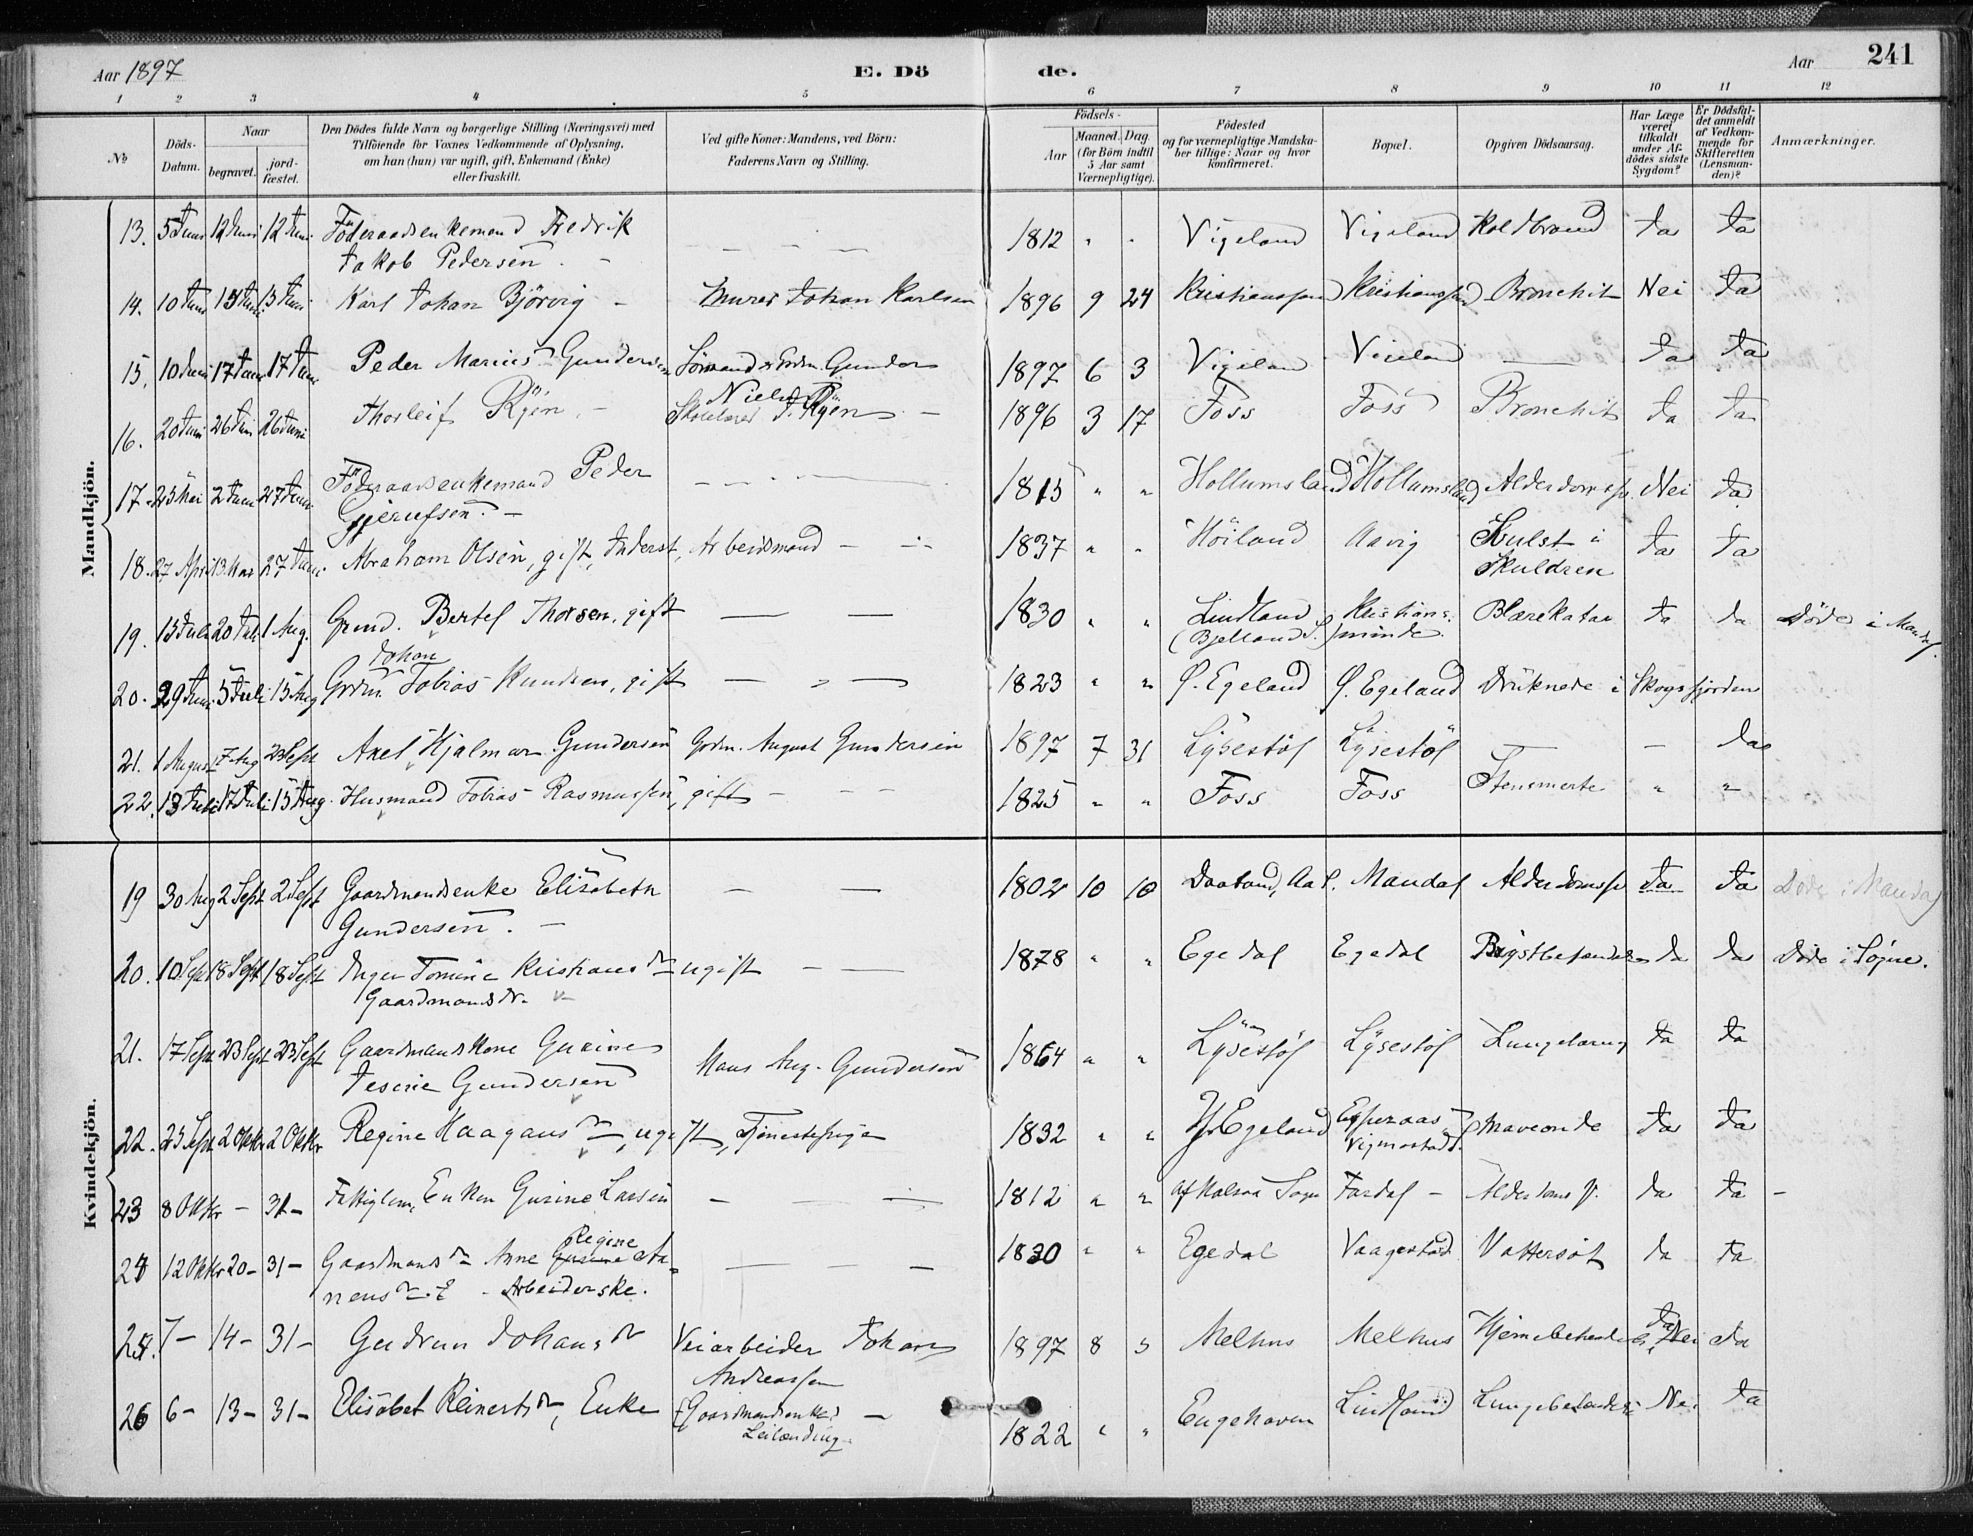 Aar 1897
E. Dö de.
Aar
241
1 2 3 4 5 6 7 8 9 10 11 12
No
Döds-Datum.
Naar
begravet.
jord-fæstet.
Den Dödes fulde Navn og borgerlige Stilling (Næringsvei) med
Tilföiende for Voxnes Vedkommende af Oplysning,
om han (hun) var ugift, gift, Enkemand (Enke)
eller fraskilt.
Ved gifte Koner: Mandens, ved Börn:
Faderens Navn og Stilling.
Födsels-
Aar
Maaned. Dag.
(for Börn indtil
5 Aar samt
Værnepligtige).
Födested
og for værnepligtige Mandska-
ber tillige: Naar og hvor
konfirmeret.
Bopæl.
Opgiven Dödsaarsag.
Har Læge
været
tilkaldt
under Af-
dödes sidste
Sygdom?
Er Dödsfal-
det anmeldt
af Vedkom-
mende for
Skifteretten
(Lensman-
den)?
Anmærkninger.
Mandkjön.
13. 5 Juni 12 Juni 12 Juni Föderaadsenkemand Fredrik Jakob Pedersen. 1812 " " Vigeland Vigeland Koldbrand Ja Ja
14. 10 Juni 13 Juni 13 Juni Karl Johan Björvig Murer Johan Karlsen 1896 9 24 Kristianssand Kristianssand Bronchit Nei Ja
15. 10 Juni 17 Juni 17 Juni Peder Marius Gundersen Gunder Nielsen 1897 6 3 Vigeland Vigeland — Ja Ja
16. 20 Juni 26 Juni 26 Juni Thorleif Ryen Skolelærer T. Ryen 1896 3 17 Foss Foss Bronchit Ja Ja
17. 23 Mai 2 Juni 27 Juni Föderaadsenkemand Peder Gjerulfsen 1815 " " Hollumsland Hollumsland Alderdomssv. Nei Ja
18. 27 April 13 Mai 27 Juni Abraham Olsen, gift, Inderst, Arbeidsmand 1837 " " Höiland Aavig Svulst i Skuldren Ja Ja
19. 13 Juli 20 Juli 1 Aug. Grmd. Bertel Thorsen, gift 1830 " " Lindland (Bjelland S.) Kristiansminde Blærekatar Ja Ja Döde i Mandal.
20. 29 Juni 5 Juli 15 Aug Grdm. Johan Tobias Knudsen, gift 1823 " " Ö. Egeland Ö. Egeland Druknede i Skogsfjorden
21. 1 August 7 Aug 23 Sept Axel Hjalmar Gundersen Grdm. August Gundersen 1897 7 31 Lysestöl Lysestöl — — Ja
22. 13 Juli 17 Juli 15 Aug. Husmand Tobias Rasmussen, gift 1825 " " Foss Foss Stensmerte " "
Kvindekjön.
19 30 Aug 2 Sept 2 Sept Gaardmandsenke Elisabeth Gundersen. 1802 10 10 Mandal Alderdomssv. Ja Ja Döde i Mandal
20. 10 Sept 18 Sept 18 Sept Inger Tomine Kristiansdr ugift Gaardmandsdr. 1878 " " Egedal Egedal Brystbetændelse Ja Ja Döde i Sögne.
21. 17 Sept 23 Sept 23 Sept Gaardmandskone Gurine Jesine Gundersen Hans Aug. Gundersen 1864 " " Lysestöl Lysestöl Lungetæring Ja Ja
22. 25 Sept 2 Oktbr 2 Oktbr Regine Haagansdr, ugift, Tjenestepige 1832 " " Y. Egeland Vigmostad Maveonde Ja Ja
23 8 Oktbr - 31 - Fattiglem, Enken Gurine Larsen 1812 " " af Halsaa Sogn Tardal - Alderdoms sv. Ja Ja -
24 12 Oktbr 20 - 31 - Gaardmandsdr Anne Regine Aanensdr. E - Arbeiderske. 1830 " " Egedal Vaagestad Vattersot Ja Ja
25. 7 - 14 - 31 - Gudrun Johansdr Veiarbeider Johan Andreassen 1897 8 5 Melhus Melhus Hjernebetændelse Ja Nei Ja
26 6 - 13 - 31 - Elisabet Reinertsdr, Enke (Gaardmandsenke) Leilænding 1822 " " Engehaven Lindland Lungebetændelse Nei Ja